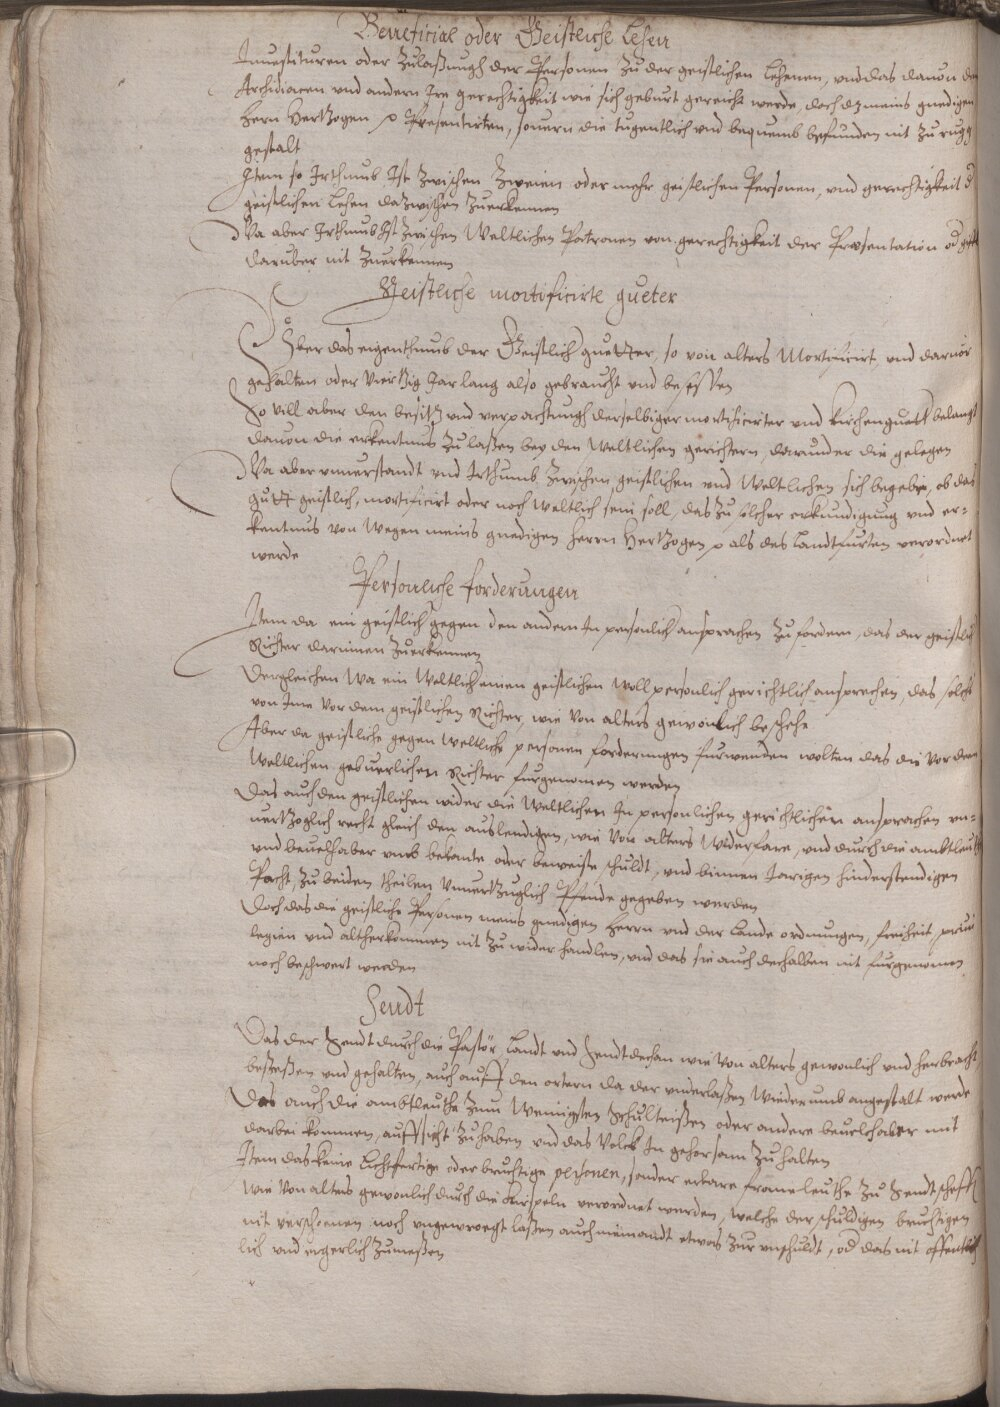 Beneficial oder Geistliche Lehen
Inuestituren oder Zulaßungh der Personen Zu der geistlichen Lehenen, vnd das dauon den
Archidiacen vnd andern Ire gerechtigkeit wie sich geburt gereicht werde, doch dz meins gnedigen
Hern Hertzogen p Presentirten, souern die tugentlich vnd bequemb befunden nit zu rugg
gestalt
Item so Irthumb Ist Zwischen Zweien oder mehr geistlichen Personen, vnd gerechtigkeit d
geistlichen Lehen dazwischen Zuerkennen
Wa aber Irthumb Ist Zwischen Weltlichen Patronen von gerechtigkeit der Præsentation od
daruber nit Zuerkennen
Geistliche mortificirte gueter
Vber das eigenthumb der Geistlich guetter, so von alters Mortificirt, vnd daruor
gehalten oder Viertzig Jar lang also gebraucht vnd besessen
So vill aber den besitz vnd verpachtungh derselbiger mortificirter vnd Kirchenguett belangt
dauon die erkentnus Zu laßen bey den Weltlichen gerichtern, darunder die gelegen
Wa aber vnuerstandt vnd Irthumb Zwischen geistlichen vnd Weltlichen sich begeben, ob das
gutt geistlich, mortificirt oder noch weltlich sein soll, das Zu solcher erkundigung vnd er-
kentnus von Wegen meins gnedigen Herrn Hertzogen p als des Landtfursten verordnet
werde
Personliche forderungen
Item da ein geistlich gegen den andern In personlich ansprachen Zu fordern, das der geistlich
Richter darinnen Zuerkennen
Dergleichen Wa ein Weltlich einen geistlichen Woll personlich gerichtlich ansprechen, das solchs
von Ime vor dem geistlichen Richter, wie von alters gewonlich beschehe
Aber da geistliche gegen Weltliche personen forderungen furwenden wolten das die vor dem
Weltlichen gebuerlichen Richter furgenomen werden
Das auch den geistlichen wider die Weltlichen In personlichen gerichtlichen ansprachen vn-
uertzoglich recht gleich den auslendigen, wie von alters Widerfare, vnd durch die ambtleuth
vnd beuelhaber vmb bekante oder beweiste schuldt, vnd binnen Jarigen hinderstendigen
Pacht, Zu beiden theilen Vnuertzuglich Pfende gegeben werden
Doch das die geistliche Personen meins gnedigen Herrn vnd der Lande ordnungen, freiheit, priui
legien vnd altherkommen nit Zu wider handlen, vnd das sie auch derhalben nit furgenomen
noch beschwert werden
Sendt
Das der Sendt durch die Pastör, Landt vnd Sendtdechan wie von alters gewonlich vnd herbracht
beseßen vnd gehalten, auch auff den ortern da der vnderlaßen Wiederumb angestalt werde
Das auch die ambtleuthe Zum Wenigsten Schulteißen oder andere beuelchaber mit
darbei kommen, auffsicht Zu haben vnd das Volck In gehorsam Zu halten
Item das keine Lichtfertige oder bruchtige personen, sonder erbare frome leuthe Zu Sendt scheffen
Wie von alters gewonlich durch die Kirspeln verordnet werden, welche der schuldigen bruchtigen
nit verschoenen noch vngewroegt laßen auch niemandt etwas Zur vnschuldt, od das nit offentlich
lich vnd ergerlich Zumeßen